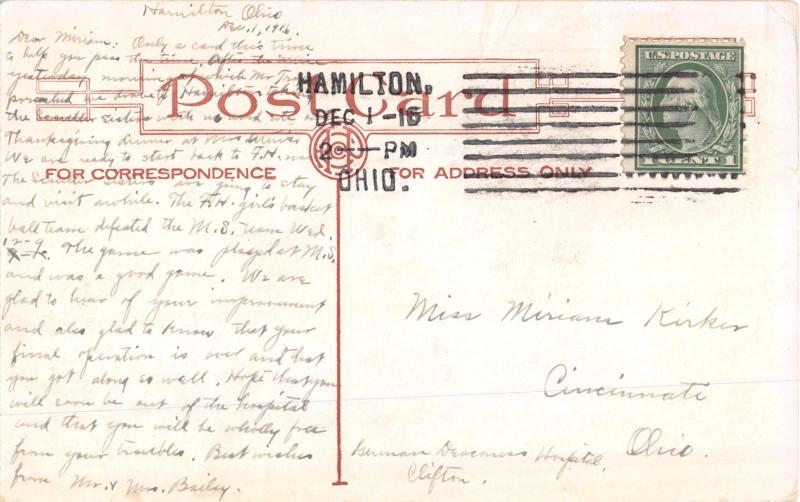 Hamilton Ohio
Dec. 1, 1916
Dear Miriam: Only a card this time
to help you pass the time. After the
yesterday morning at which Mr.
we drove to Hamilton
the sisters with us and ate
Thanksgiving dinner at
We are ready to start back to F.H. now
The sisters are going to stay
and visit awhile. The F.H. girl's basket
ball team defeated the M.S. team Wed.
12-9. The game was played at M.S.
and was a good game. We are
glad to hear of your improvement
and also glad to know that your
final operation is over and that
you got along so well. Hope that you
will soon be out of the hospital
and that you will be wholly free
from your troubles. Best wishes
from Mr. & Mrs. Bailey.
Post Card
FOR CORRESPONDENCE
FOR ADDRESS ONLY
HAMILTON,
DEC 1-16
2 — PM
OHIO.
U.S. POSTAGE
1 CENT 1
Miss Miriam Kirker
Cincinnati
Ohio.
German Deaconess Hospital,
Clifton.